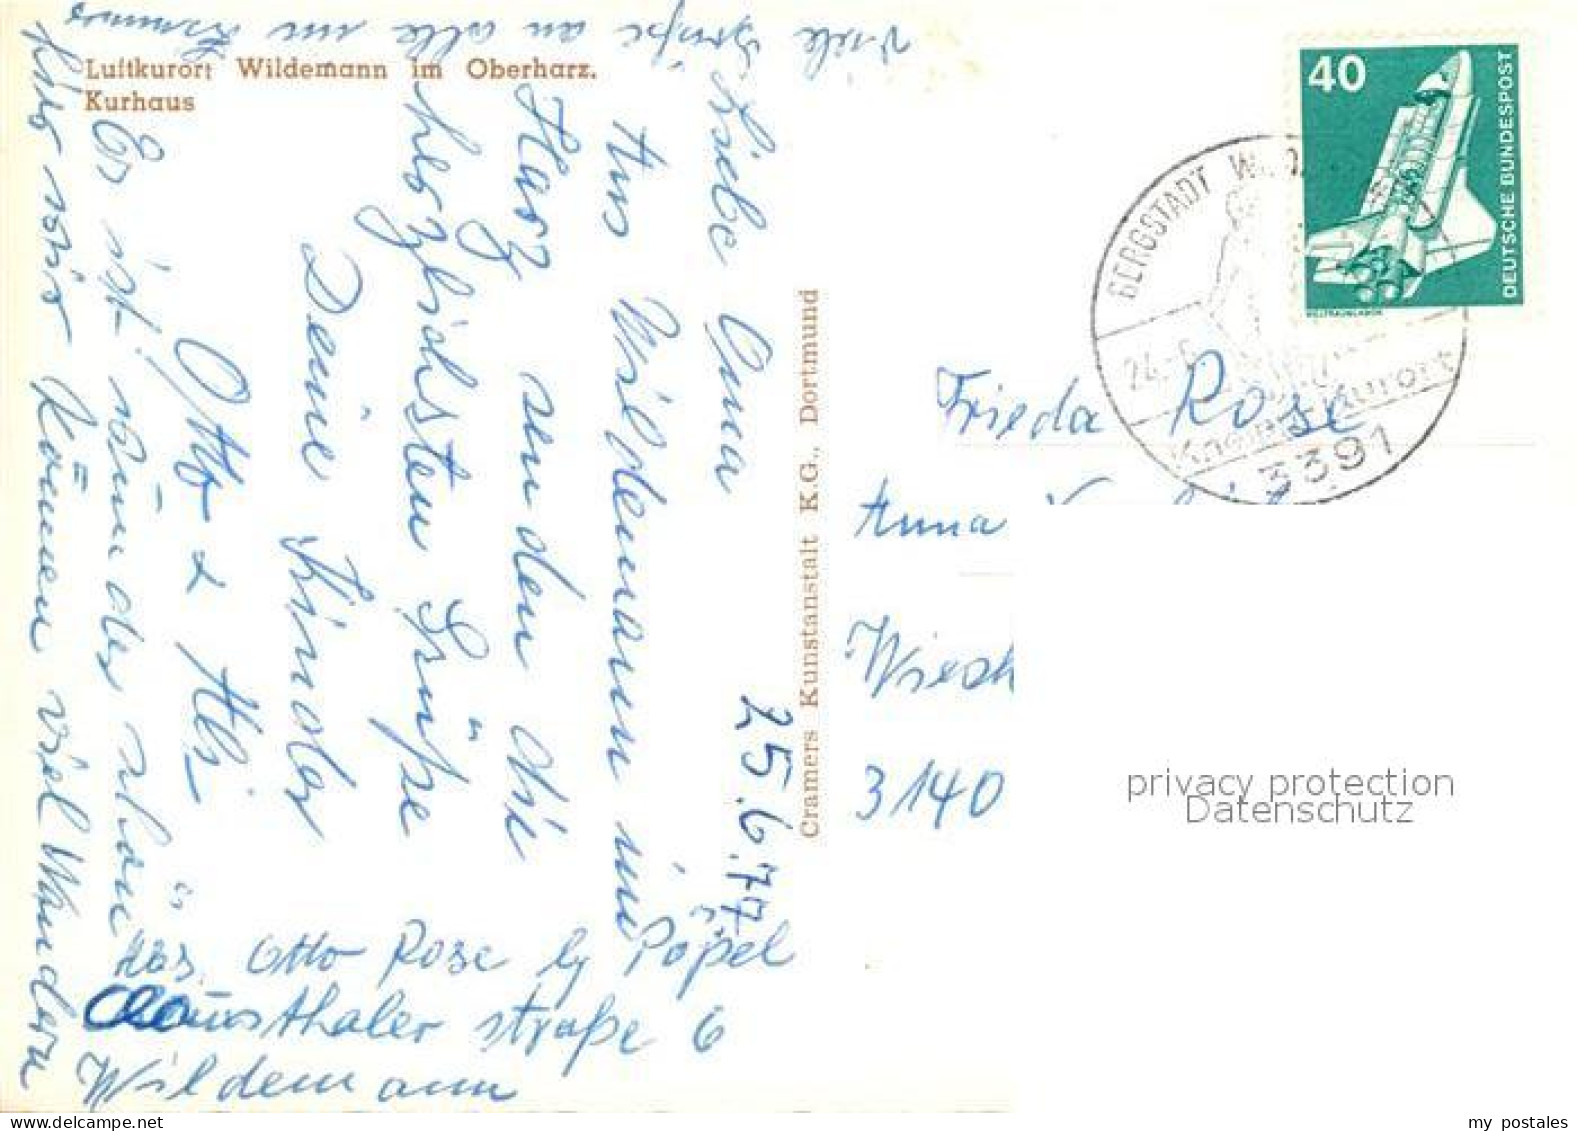 Luftkurort Wildemann im Oberharz.
Kurhaus
Viele Grüße an alle
25.6.77
Liebe Oma
Aus Wildemann im
Harz senden die
herzlichsten Grüße
Deine Kinder
Otto
Es ist wunderschön
hier wir können viel Wandern
Abs. Otto Rose bg Pöpel
Clausthaler straße 6
Wildemann
Cramers Kunstanstalt K.G., Dortmund
40
DEUTSCHE BUNDESPOST
WELTRAUMLABOR
BERGSTADT
24.-6.
Kneippkurort
3391
Frieda Rose
Anna
3140
privacy protection
Datenschutz
my postales